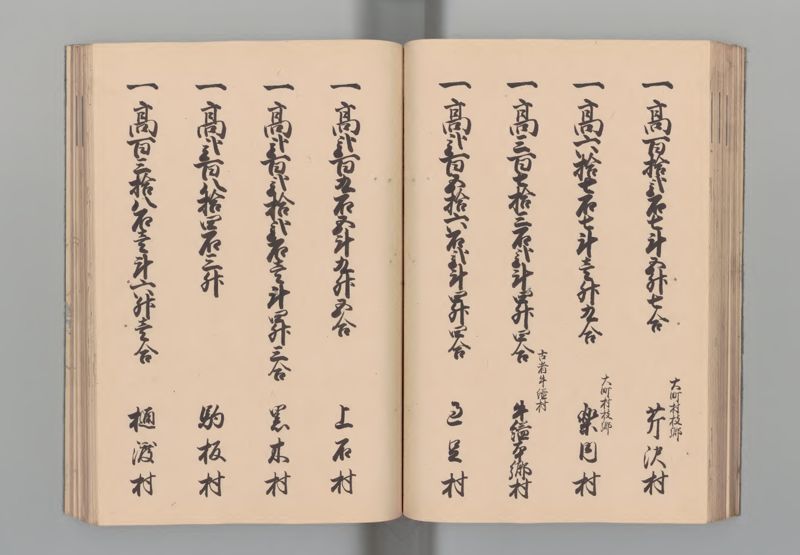 一高百拾弐石七斗五升七合
大町村枝郷
芹沢村
一高六拾七石七斗壱升九合
大町村枝郷
楽岡村
一高三百七拾三石弐斗四升四合
古者牛縊村
牛縊本郷村
一高弐百五拾六石弐斗四升四合
足村
一高弐百九石五斗九升五合
上石村
一高弐百弐拾弐石壱斗四升三合
黒木村
一高弐百八拾四石三升
駒板村
一高百三拾八石壱斗六升壱合
樋渡村